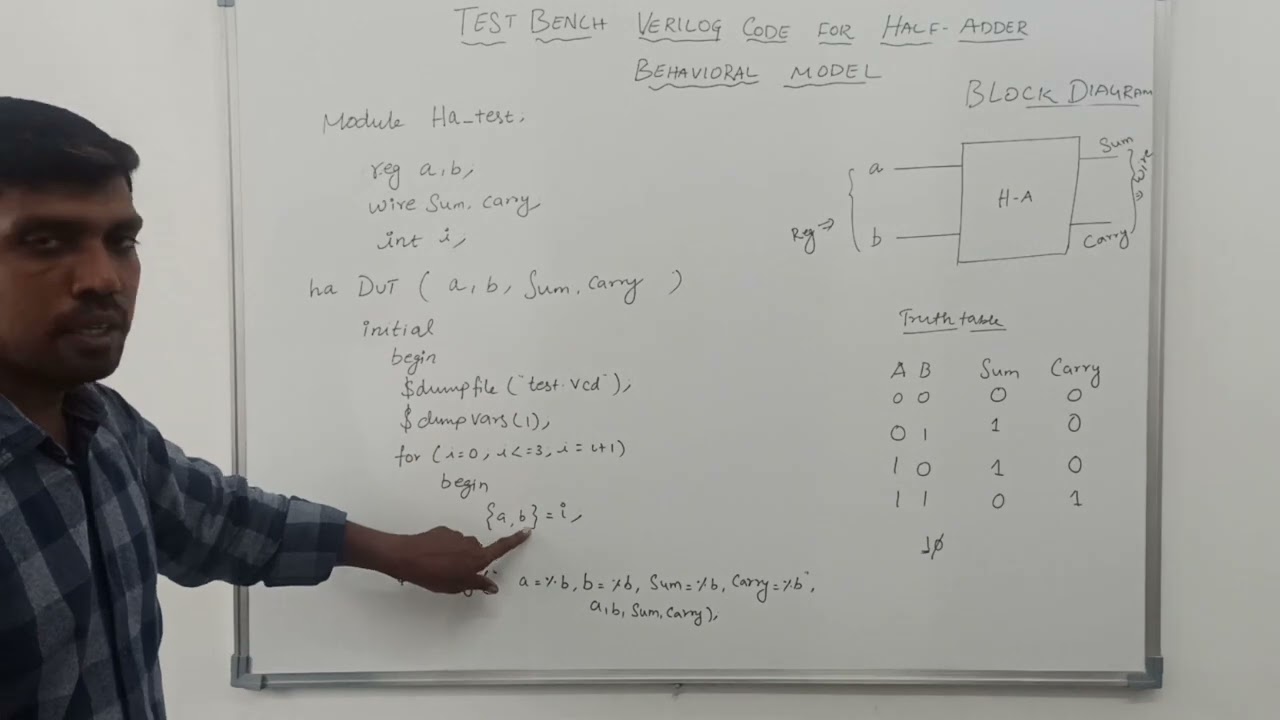 TEST BENCH VERILOG CODE FOR HALF-ADDER
BEHAVIORAL MODEL
Module Ha_test,
reg a,b,
wire Sum, Carry,
int i,
ha DUT ( a, b, Sum, Carry )
initial
begin
$dumpfile ("test.vcd"),
$dumpvars(1),
for (i=0, i<=3, i = i+1)
begin
{a,b} = i,
a = %b, b = %b, Sum = %b, Carry = %b",
a,b, Sum, Carry),
BLOCK DIAGRAM
a
b
Reg ⇒
H-A
Sum
Carry
wire
Truth table
A B Sum Carry
0 0 0 0
0 1 1 0
1 0 1 0
1 1 0 1